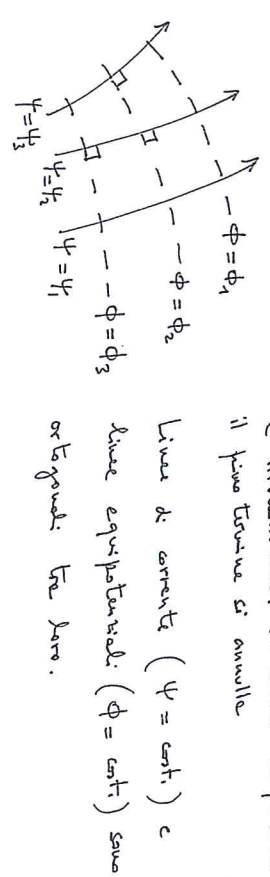 il primo termine si annulla
Linee di corrente (ψ = cost.) e
linee equipotenziali (ϕ = cost.) sono
ortogonali tra loro.
ϕ = ϕ₁
ϕ = ϕ₂
ϕ = ϕ₃
ψ = ψ₃
ψ = ψ₂
ψ = ψ₁